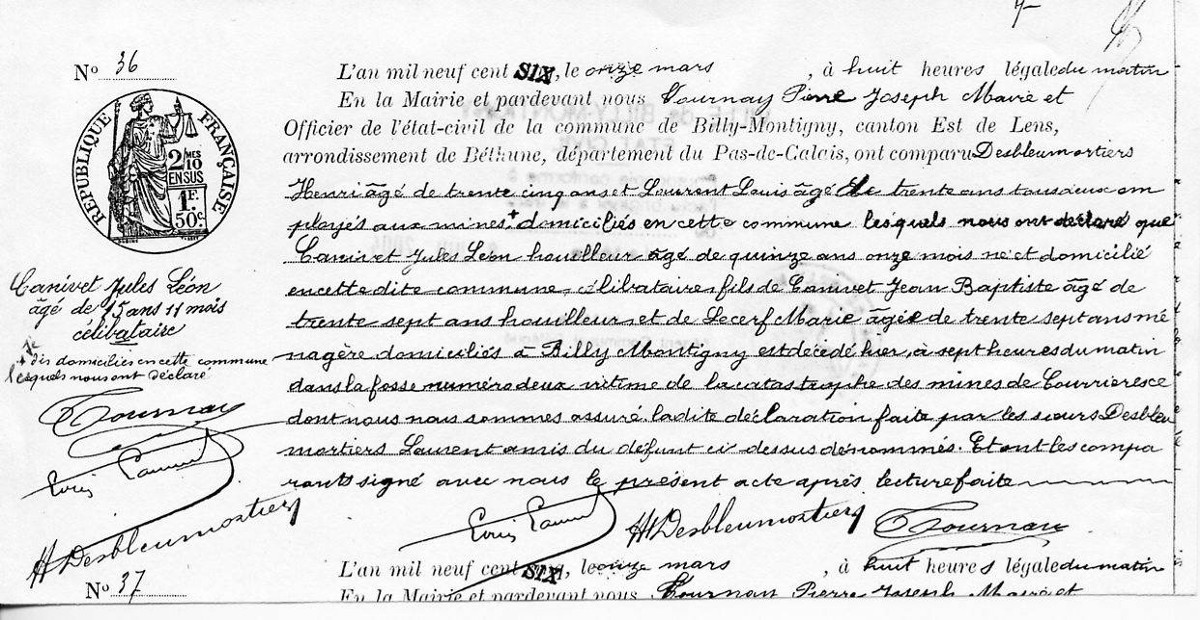 N° 36
RÉPUBLIQUE FRANÇAISE
2/10 MES
EN SUS
1F.
50c.
L'an mil neuf cent SIX, le onze mars, à huit heures légale du matin
En la Mairie et pardevant nous Tournay Pierre Joseph Maire et
Officier de l'état-civil de la commune de Billy-Montigny, canton Est de Lens,
arrondissement de Béthune, département du Pas-de-Calais, ont comparu Desbleumortiers
Henri âgé de trente cinq ans et Laurent Louis âgé de trente ans tous deux em
ployés aux mines + domiciliés en cette commune lesquels nous ont déclaré que
Canivet Jules Léon houilleur âgé de quinze ans onze mois né et domicilié
en cette dite commune, célibataire fils de Canivet Jean Baptiste âgé de
trente sept ans houilleur et de Lecerf Marie âgée de trente sept ans mé
nagère domiciliés à Billy Montigny est décédé hier, à sept heures du matin
dans la fosse numéro deux victime de la catastrophe des mines de Courrières ce
dont nous nous sommes assuré ladite déclaration faite par les sieurs Desbleu
mortiers Laurent amis du défunt ci dessus dénommés. Et ont les compa
rants signé avec nous le présent acte après lecture faite
Canivet Jules Léon
âgé de 15 ans 11 mois
célibataire
domiciliés en cette commune
lesquels nous ont déclaré
Tournay
Louis Laurent
H Desbleumortiers
Louis Laurent
H Desbleumortiers
Tournay
N° 37
L'an mil neuf cent SIX, le onze mars, à huit heures légale du matin
En la Mairie et pardevant nous Tournay Pierre Joseph Maire et